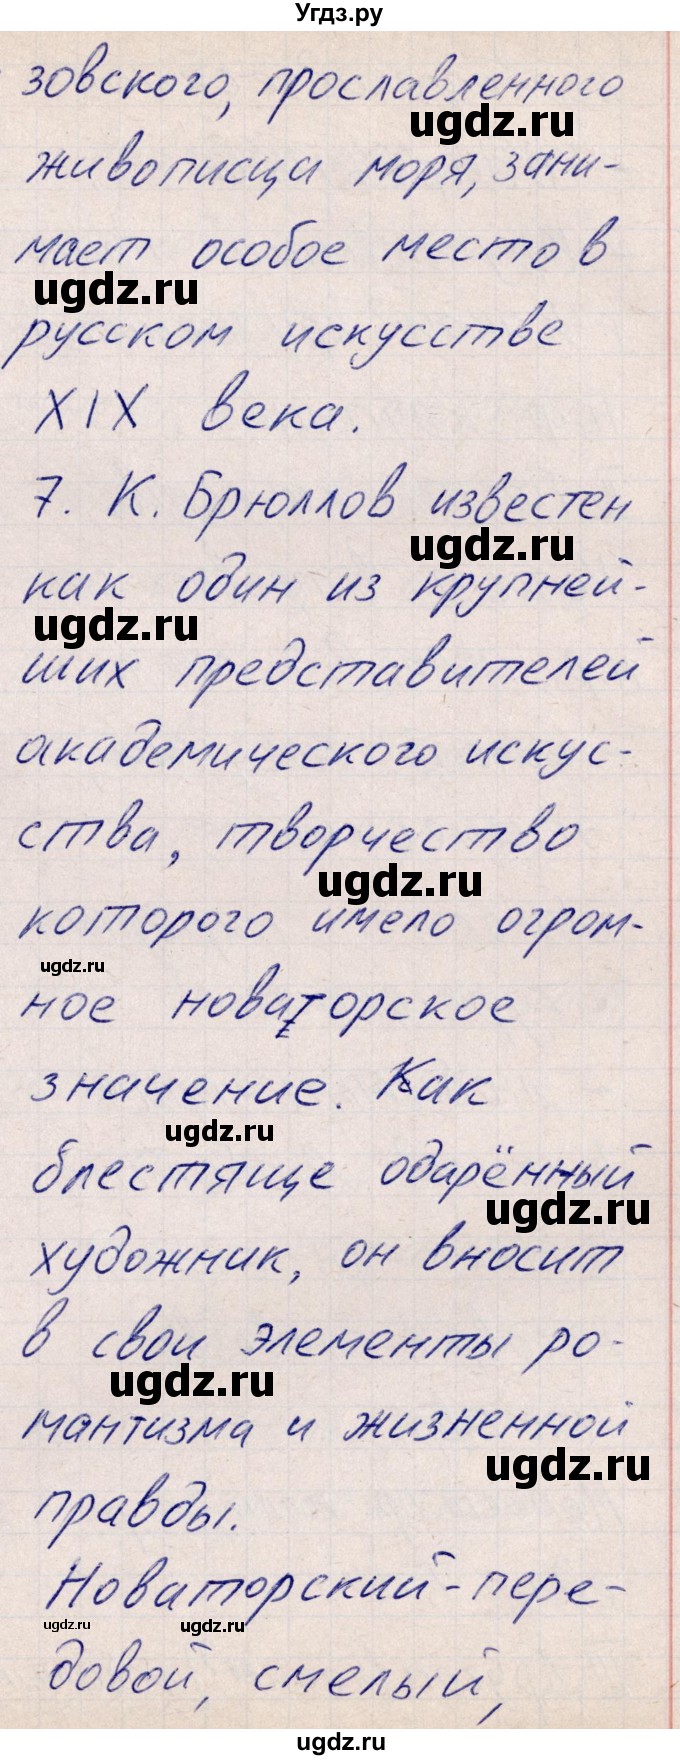 Угдз.ру
зовского, прославленного
ugdz.ru
живописца моря, зани-
мает особое место в
ugdz.ru
русском искусстве
XIX века.
7. К. Брюллов известен
ugdz.ru
как один из крупней-
ugdz.ru
ших представителей
академического искус-
ства, творчество
ugdz.ru
которого имело огром-
ugdz.ru
ное новаторское
значение. Как
ugdz.ru
блестяще одарённый
ugdz.ru
художник, он вносит
в свои элементы ро-
ugdz.ru
мантизма и жизненной
ugdz.ru
правды.
Новаторский - пере-
ugdz.ru
ugdz.ru
довой, смелый,
ugdz.ru